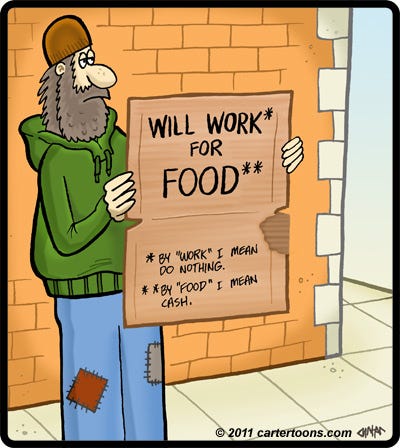 WILL WORK*
FOR
FOOD**
* BY "WORK" I MEAN
DO NOTHING.
**BY "FOOD" I MEAN
CASH.
© 2011 cartertoons.com